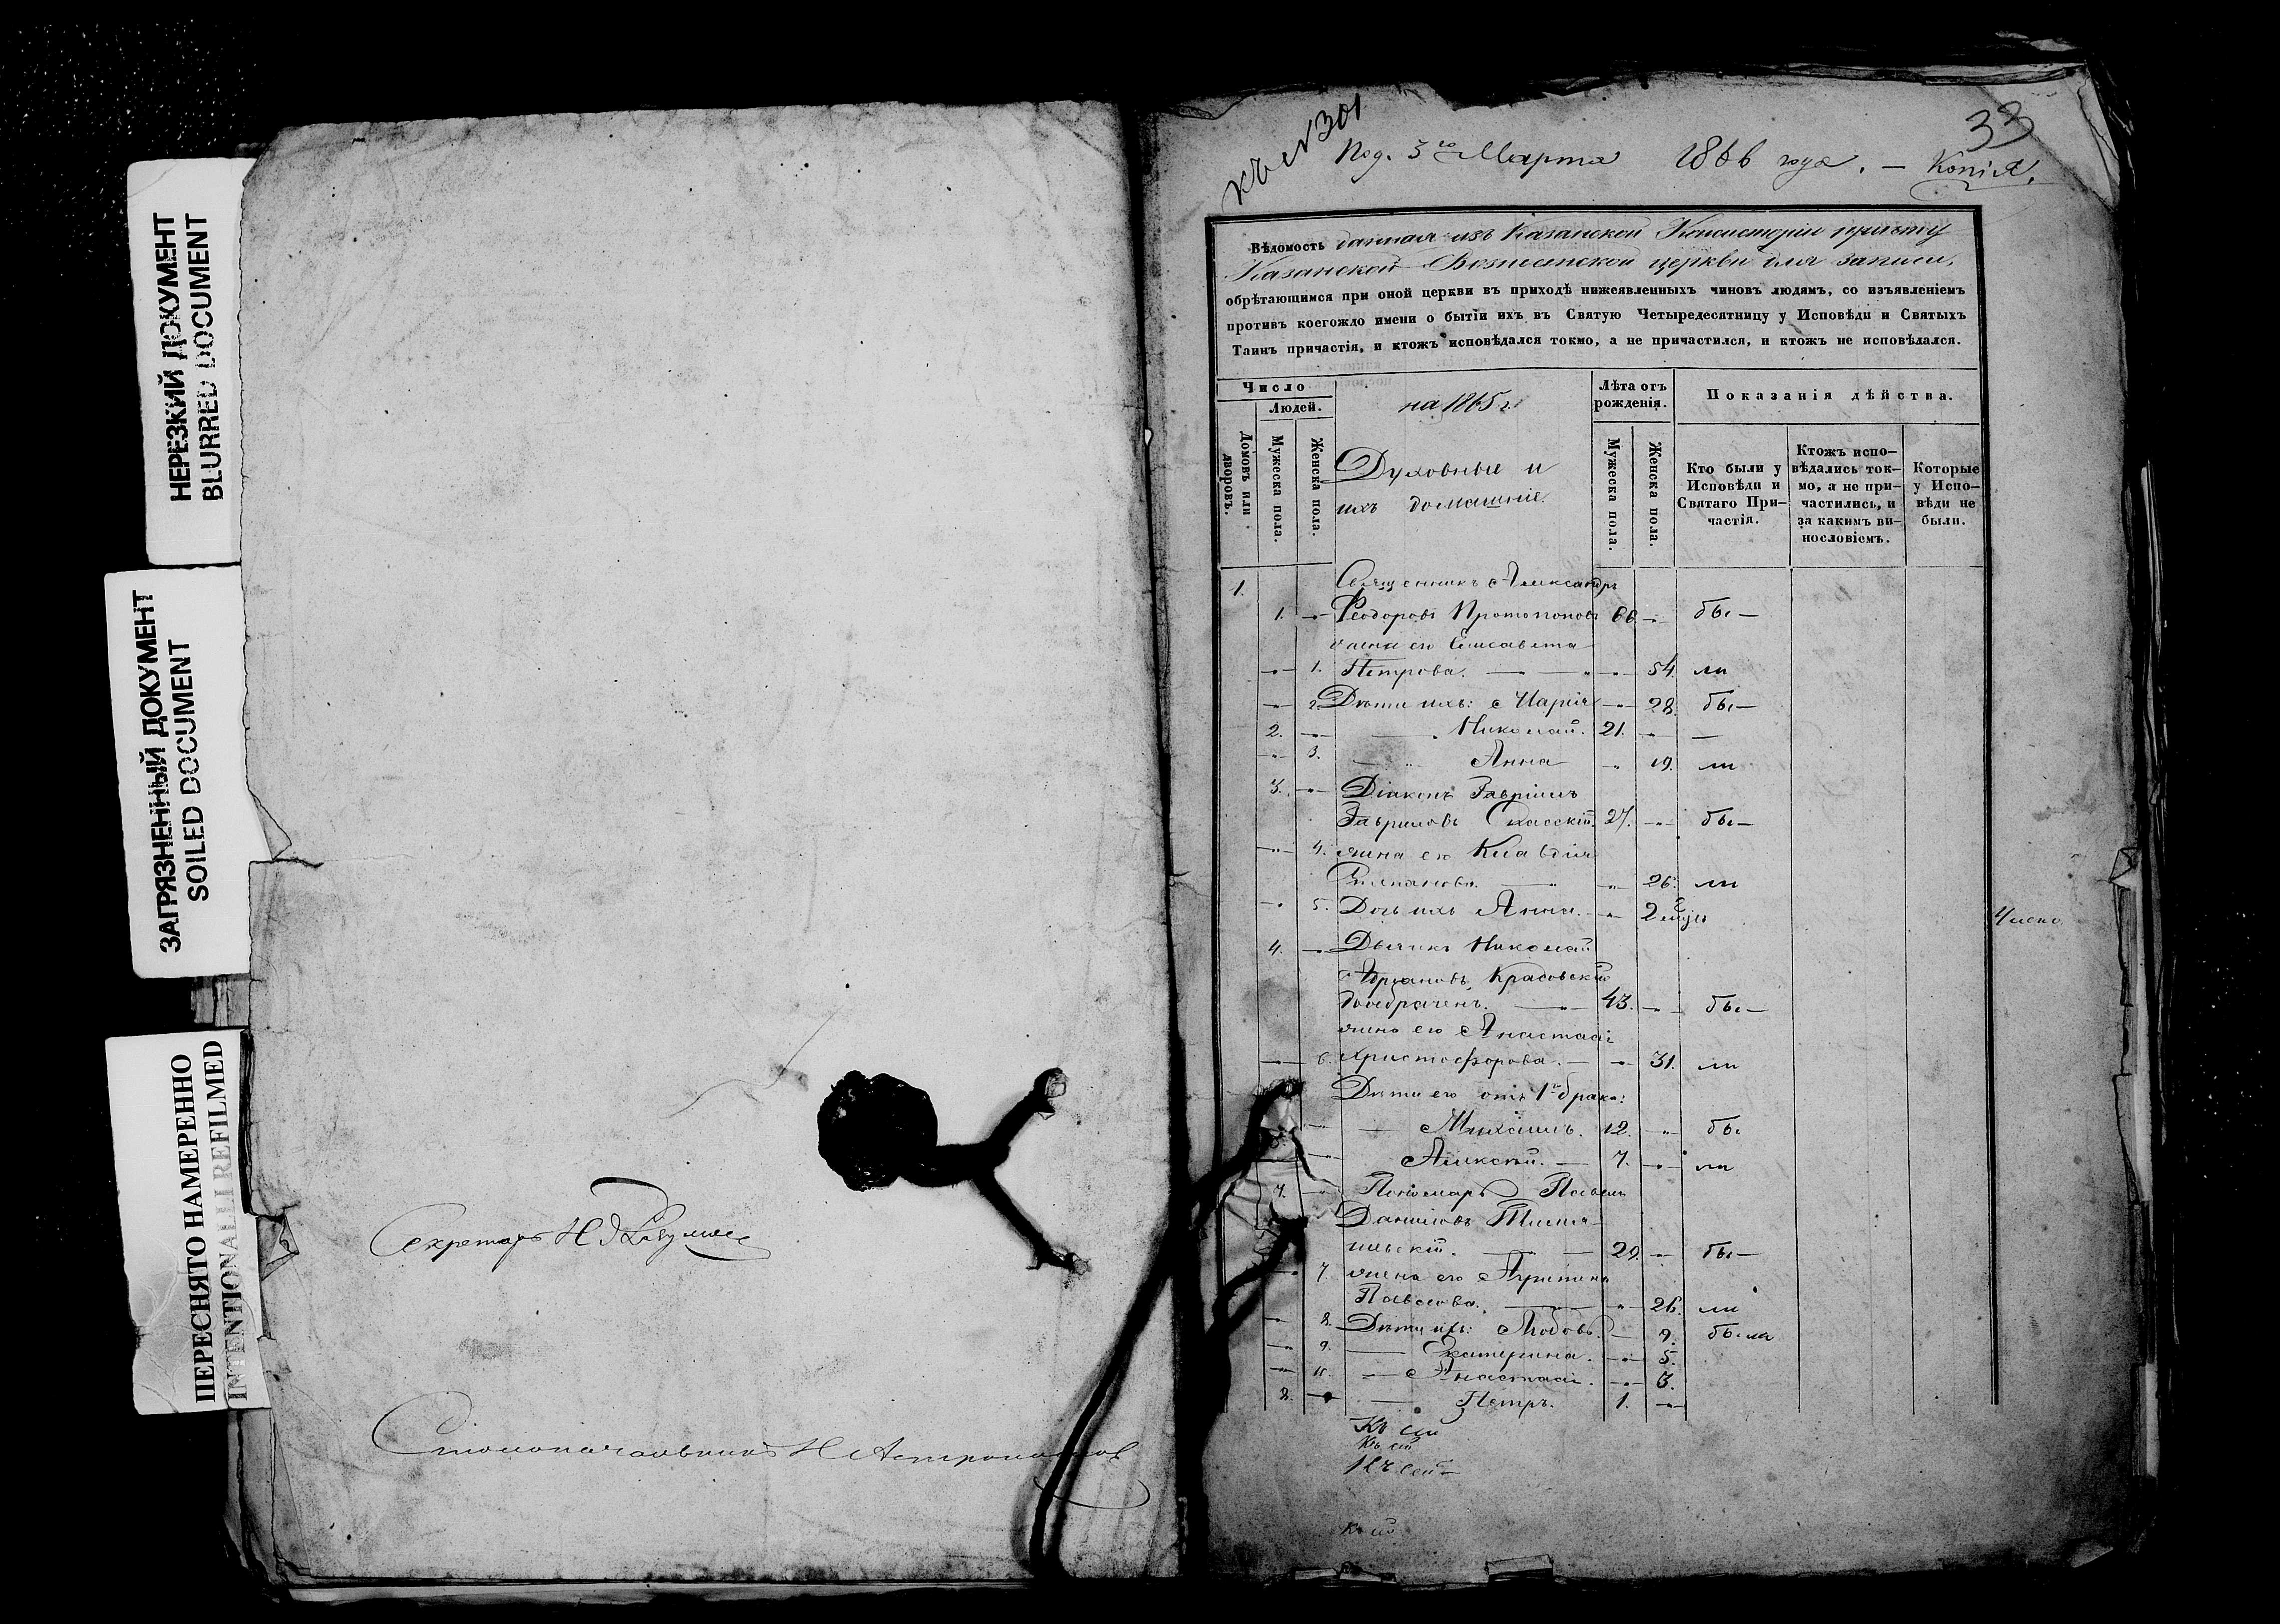 НЕРЕЗКИЙ ДОКУМЕНТ
BLURRED DOCUMENT
ЗАГРЯЗНЕННЫЙ ДОКУМЕНТ
SOILED DOCUMENT
ПЕРЕСНЯТО НАМЕРЕННО
INTENTIONALLI REFILMED
Секретарь Н
Столоначальникъ Н
къ №301
33
Под. 3го Марта 1866 года. — Копія.
Вѣдомость данная изъ Казанской Консисторіи причту
Казанской Вознесенской церкви для записи,
обрѣтающимся при оной церкви въ приходѣ нижеявленныхъ чиновъ людямъ, со изъявленіемъ
противъ коегождо имени о бытіи ихъ въ Святую Четыредесятницу у Исповѣди и Святыхъ
Таинъ причастія, и ктожъ исповѣдался токмо, а не причастился, и ктожъ не исповѣдался.
Число
Людей.
Домовъ или дворовъ.
Мужеска пола.
Женска пола.
на 1865 г.
Духовные и
ихъ домашніе.
Лѣта отъ рожденія.
Мужеска пола.
Женска пола.
Показанія дѣйства.
Кто были у Исповѣди и Святаго При-частія.
Ктожъ испо-вѣдались ток-мо, а не при-частились, и за какимъ ви-нословіемъ.
Которые у Испо-вѣди не были.
1. Священникъ Александръ
1. — Ѳеодоровъ Протопоповъ 66 — бы—
жена его Елисавета
— 1. Петрова. — — 54. ли
— 2. Дѣти ихъ: Марія — 28. бы—
2. — Николай. 21. — —
— 3. Анна — 19. ли
3. — Діаконъ Гавріилъ
Гавриловъ Спасскій. 27. — бы—
— 4. жена его Клавдія
Степанова. — — 26. ли
— 5. Дочь ихъ Анна. — 2
4. — Дьячикъ Николай
Красовскій
двоебраченъ. — 43. — бы—
жена его Анастасі
— 6. Христофорова. — — 31. ли
Дѣти его отъ 1го брака:
— Михаилъ. 12. — бы
Алексѣй. — 7. — ли
7. — Пономарь Павелъ
Даниловъ
29. — бы—
— 7. жена его Агрипина
Павлова. — — 26. ли
— 8. Дѣти ихъ: Любовь. — 9. была
— 9. — Екатерина. — 5.
— — Анастасі. — 3.
8. — — Петръ. 1. —